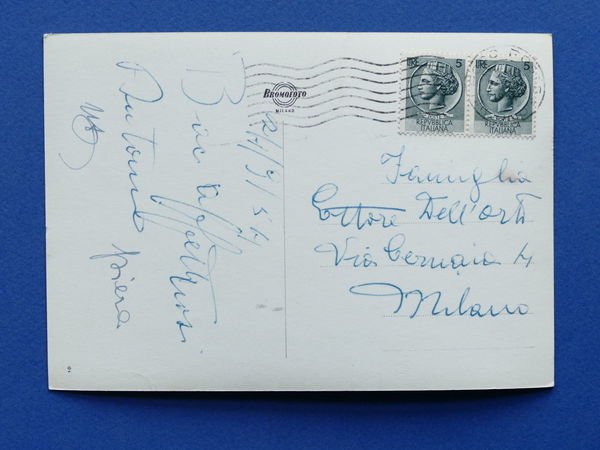 Baci affettuosi
Antonio
piera
24/9/54
BROMOFOTO
MILANO
LIRE 5
REPVBBLICA
ITALIANA
LIRE 5
REPVBBLICA
ITALIANA
Famiglia
Ettore Dell'orto
Via Cernaia 4
Milano